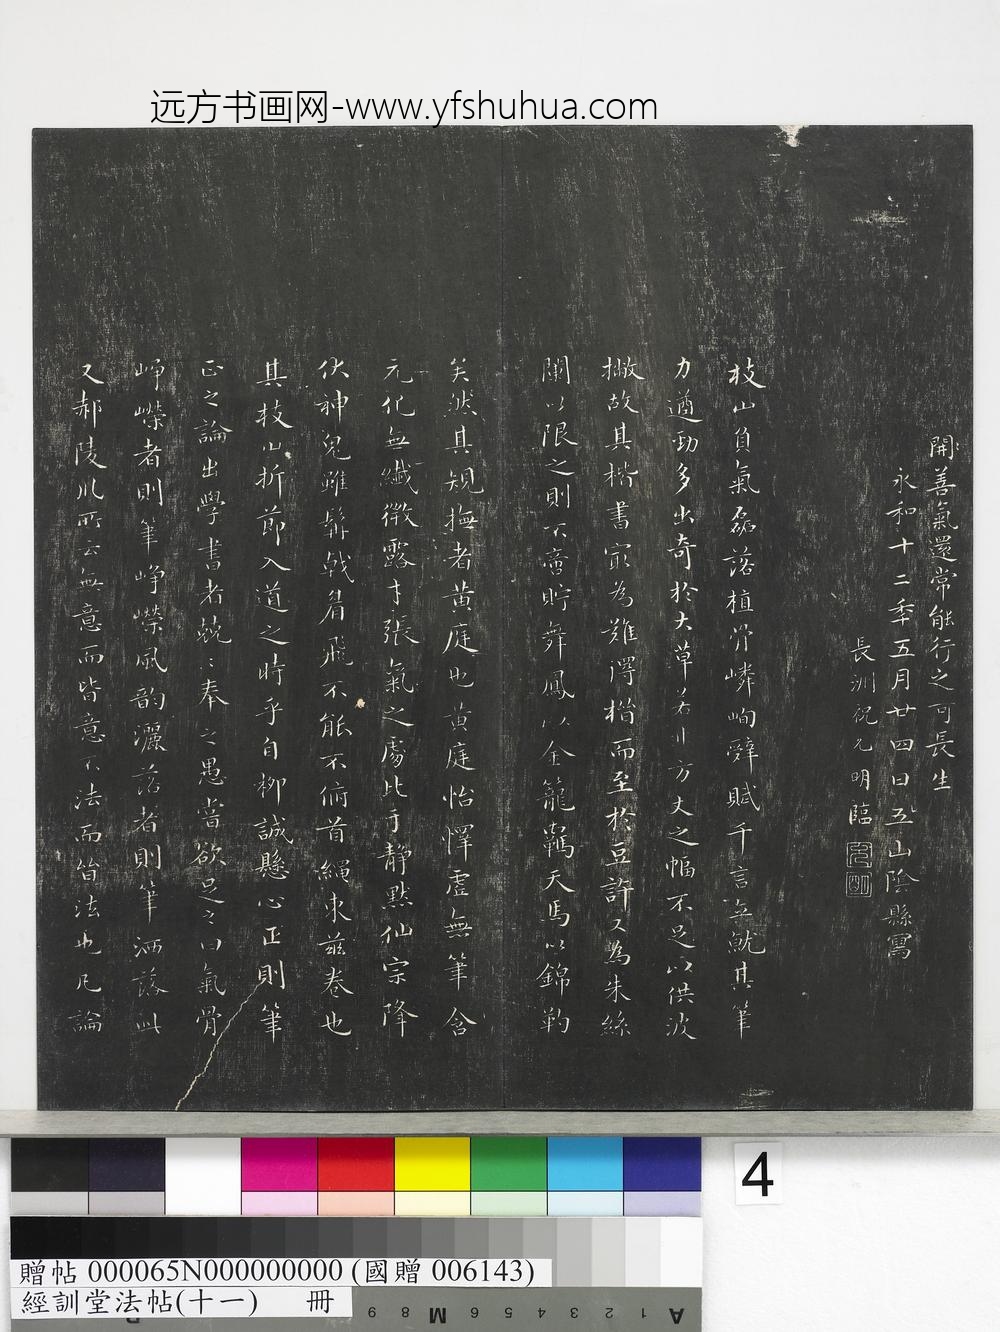 远方书画网-www.yfshuhua.com
開善氣還常能行之可長生
永和十二年五月廿四日五山陰縣寫
長洲祝允明臨
枝山負氣磊落植骨嶙峋辭賦千言立就其筆
力遒勁多出奇於大草若非方丈之幅不足以供波
撇故其楷書宲為難得楷而至於豆許又為朱絲
闌以限之則不啻貯舞鳳以金籠羈天馬以錦勒
矣然其規撫者黃庭也黃庭怡懌虛無筆含
元化無纖微露才張氣之處比于靜默仙宗降
伏神鬼雖髯戟眉飛不能不俯首繩束茲卷也
其枝山折節入道之時乎自柳誠懸心正則筆
正之論出學書者兢〻奉之愚嘗欲足之曰氣骨
崢嶸者則筆崢嶸風韵灑落者則筆洒落此
又郝陵川所云無意而皆意不法而皆法也凡論
4
贈帖 000065N000000000 (國贈 006143)
經訓堂法帖(十一) 冊
9 8 M 6 5 4 3 2 1 A